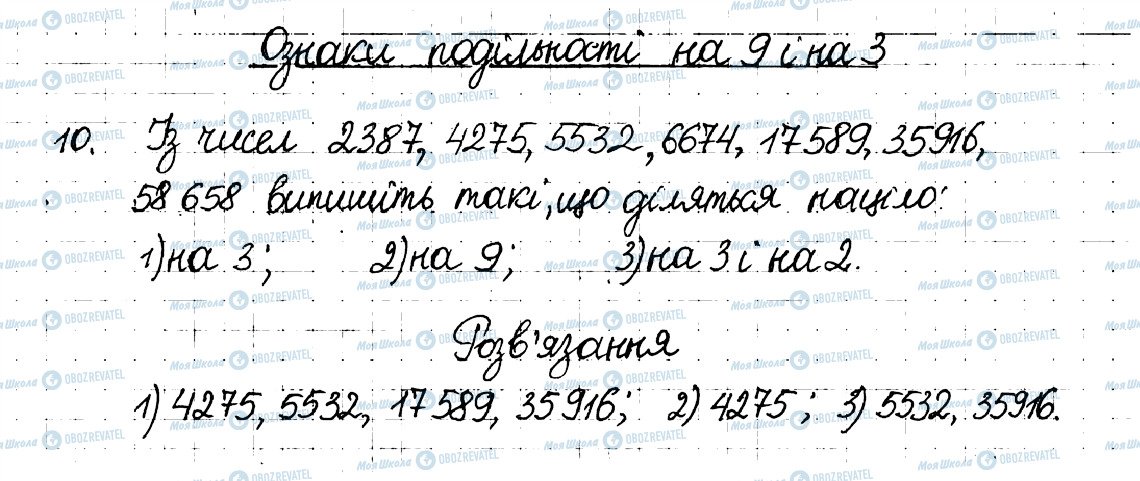 Ознаки подільності на 9 і на 3
10. Із чисел 2387, 4275, 5532, 6674, 17589, 35916,
58 658 випишіть такі, що діляться націло:
1) на 3; 2) на 9; 3) на 3 і на 2.
Розв'язання
1) 4275, 5532, 17589, 35916; 2) 4275; 3) 5532, 35916.
Моя Школа OBOZREVATEL